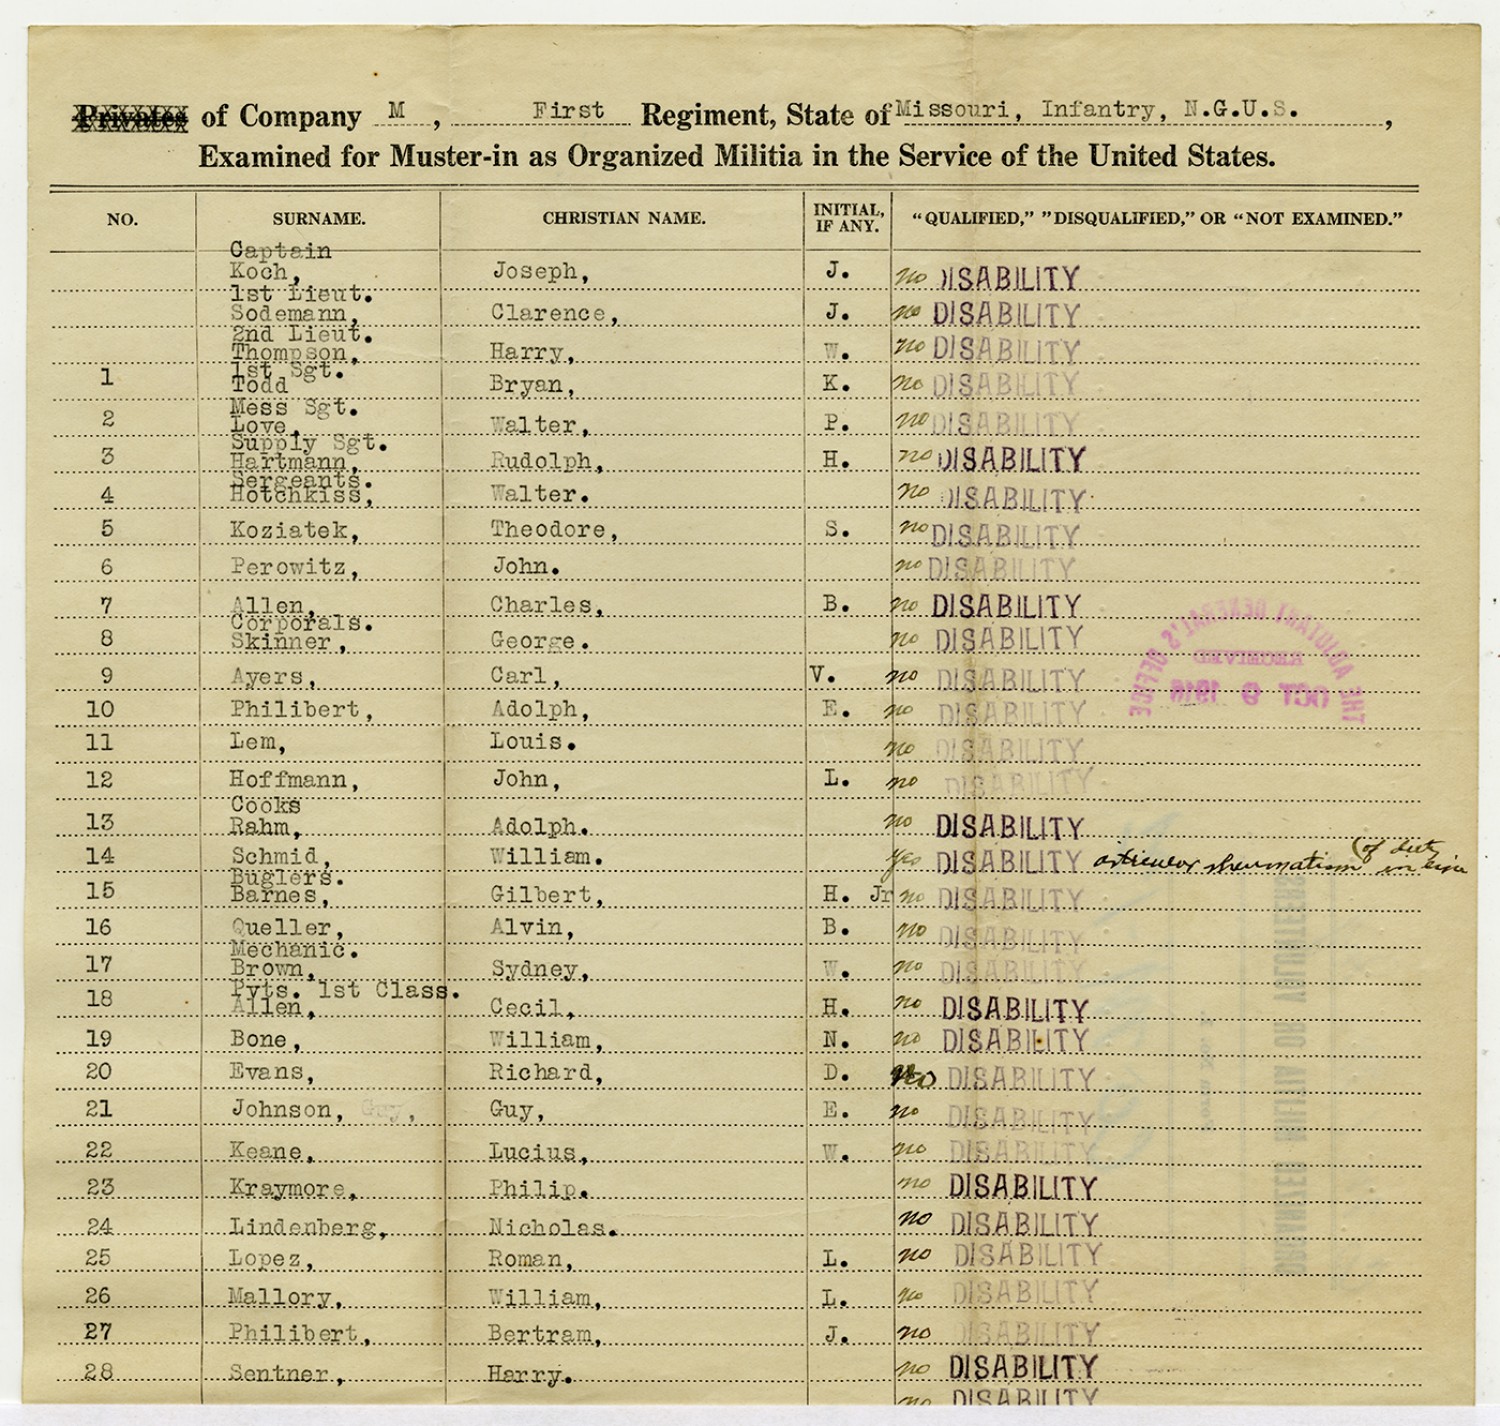 Privates of Company M, First Regiment, State of Missouri, Infantry, N.G.U.S.,
Examined for Muster-in as Organized Militia in the Service of the United States.
NO. SURNAME. CHRISTIAN NAME. INITIAL, IF ANY. "QUALIFIED," "DISQUALIFIED," OR "NOT EXAMINED."
Captain
Koch, Joseph, J. no DISABILITY
1st Lieut.
Sodemann, Clarence, J. no DISABILITY
2nd Lieut.
Thompson, Harry, W. no DISABILITY
1st Sgt.
1 Todd Bryan, K. no DISABILITY
Mess Sgt.
2 Love, Walter, P. no DISABILITY
Supply Sgt.
3 Hartmann, Rudolph, H. no DISABILITY
Sergeants.
4 Hotchkiss, Walter. no DISABILITY
5 Koziatek, Theodore, S. no DISABILITY
6 Perowitz, John. no DISABILITY
7 Allen, Charles, B. no DISABILITY
Corporals.
8 Skinner, George. no DISABILITY
9 Ayers, Carl, V. no DISABILITY
10 Philibert, Adolph, E. no DISABILITY
11 Lem, Louis. no DISABILITY
12 Hoffmann, John, L. no DISABILITY
Cooks
13 Rahm, Adolph. no DISABILITY
14 Schmid, William. Yes DISABILITY articular rheumatism in line of duty
Buglers.
15 Barnes, Gilbert, H. Jr no DISABILITY
16 Queller, Alvin, B. no DISABILITY
Mechanic.
17 Brown, Sydney, W. no DISABILITY
Pvts. 1st Class.
18 Allen, Cecil, H. no DISABILITY
19 Bone, William, N. no DISABILITY
20 Evans, Richard, D. No DISABILITY
21 Johnson, Guy, Guy, E. no DISABILITY
22 Keane, Lucius, W. no DISABILITY
23 Kraymore, Philip. no DISABILITY
24 Lindenberg, Nicholas. no DISABILITY
25 Lopez, Roman, L. no DISABILITY
26 Mallory, William, L. no DISABILITY
27 Philibert, Bertram, J. no DISABILITY
28 Sentner, Harry. no DISABILITY
no DISABILITY
THE ADJUTANT GENERAL'S OFFICE
RECEIVED
OCT 9 1916
ORGANIZED MILITIA OR VOLUNTEERS